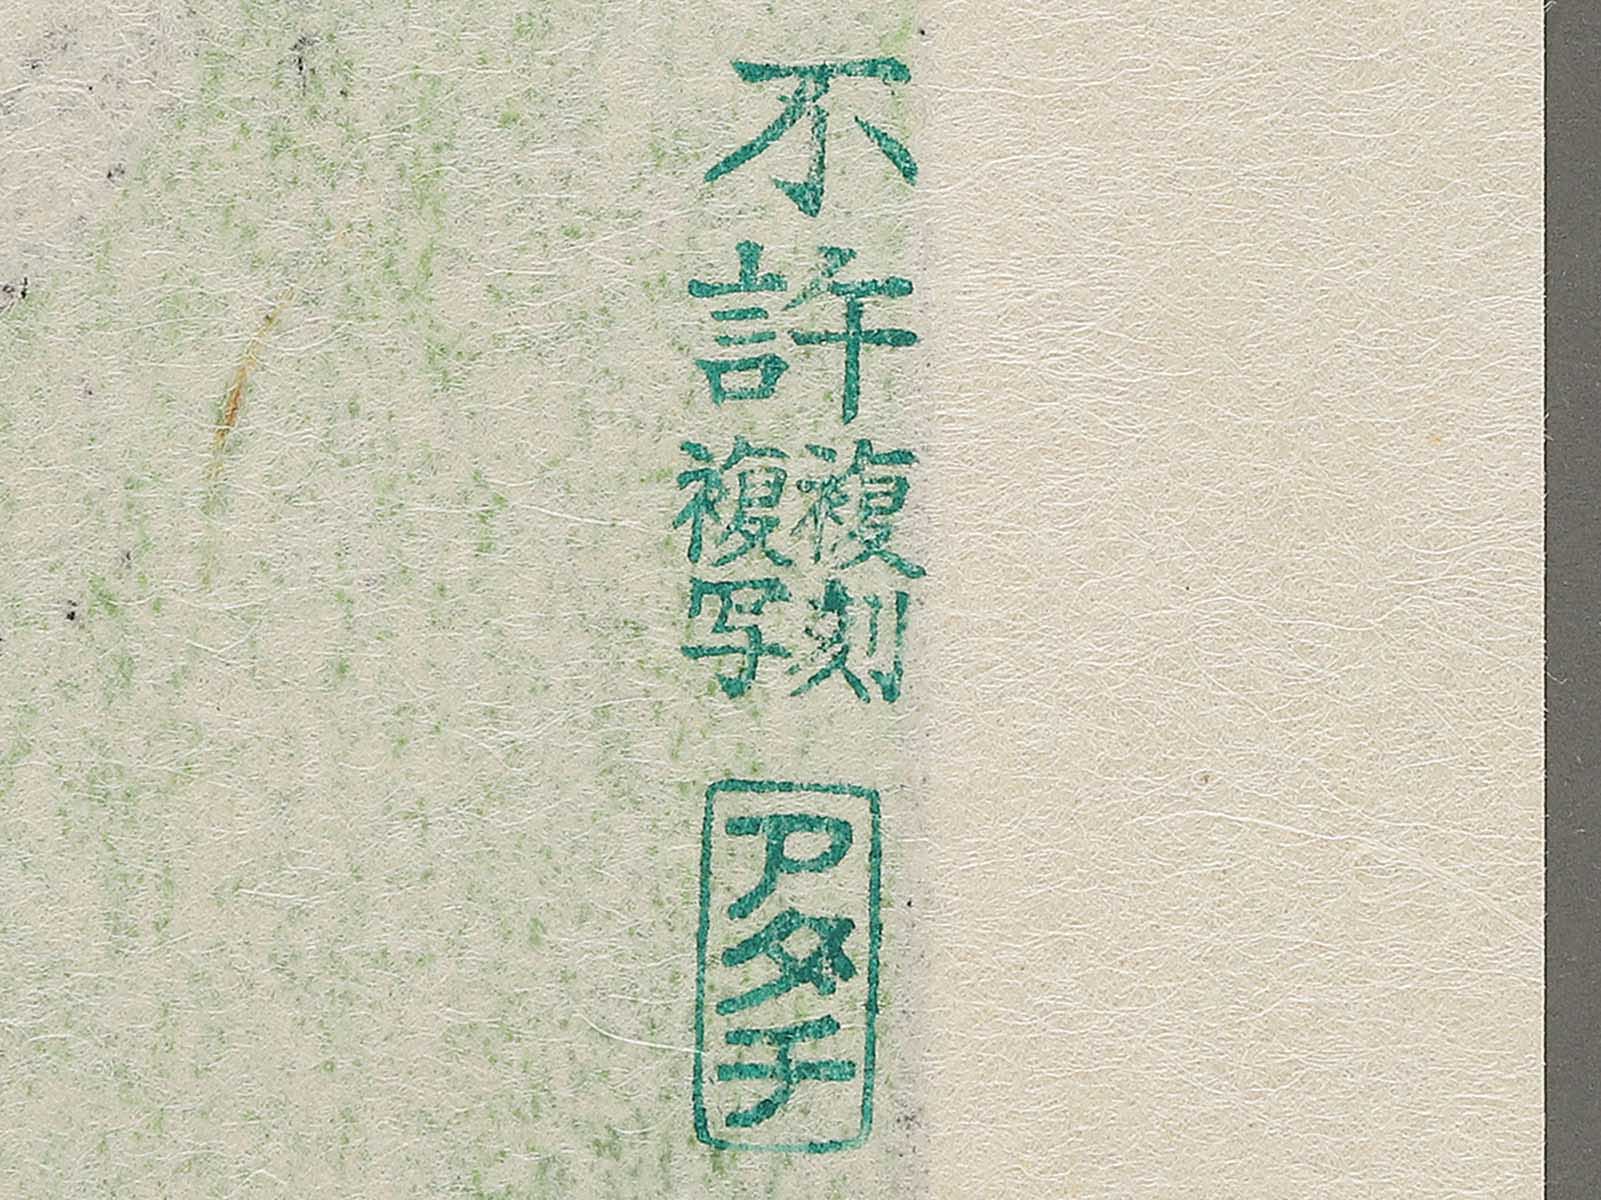 不許複刻
複写
アダチ